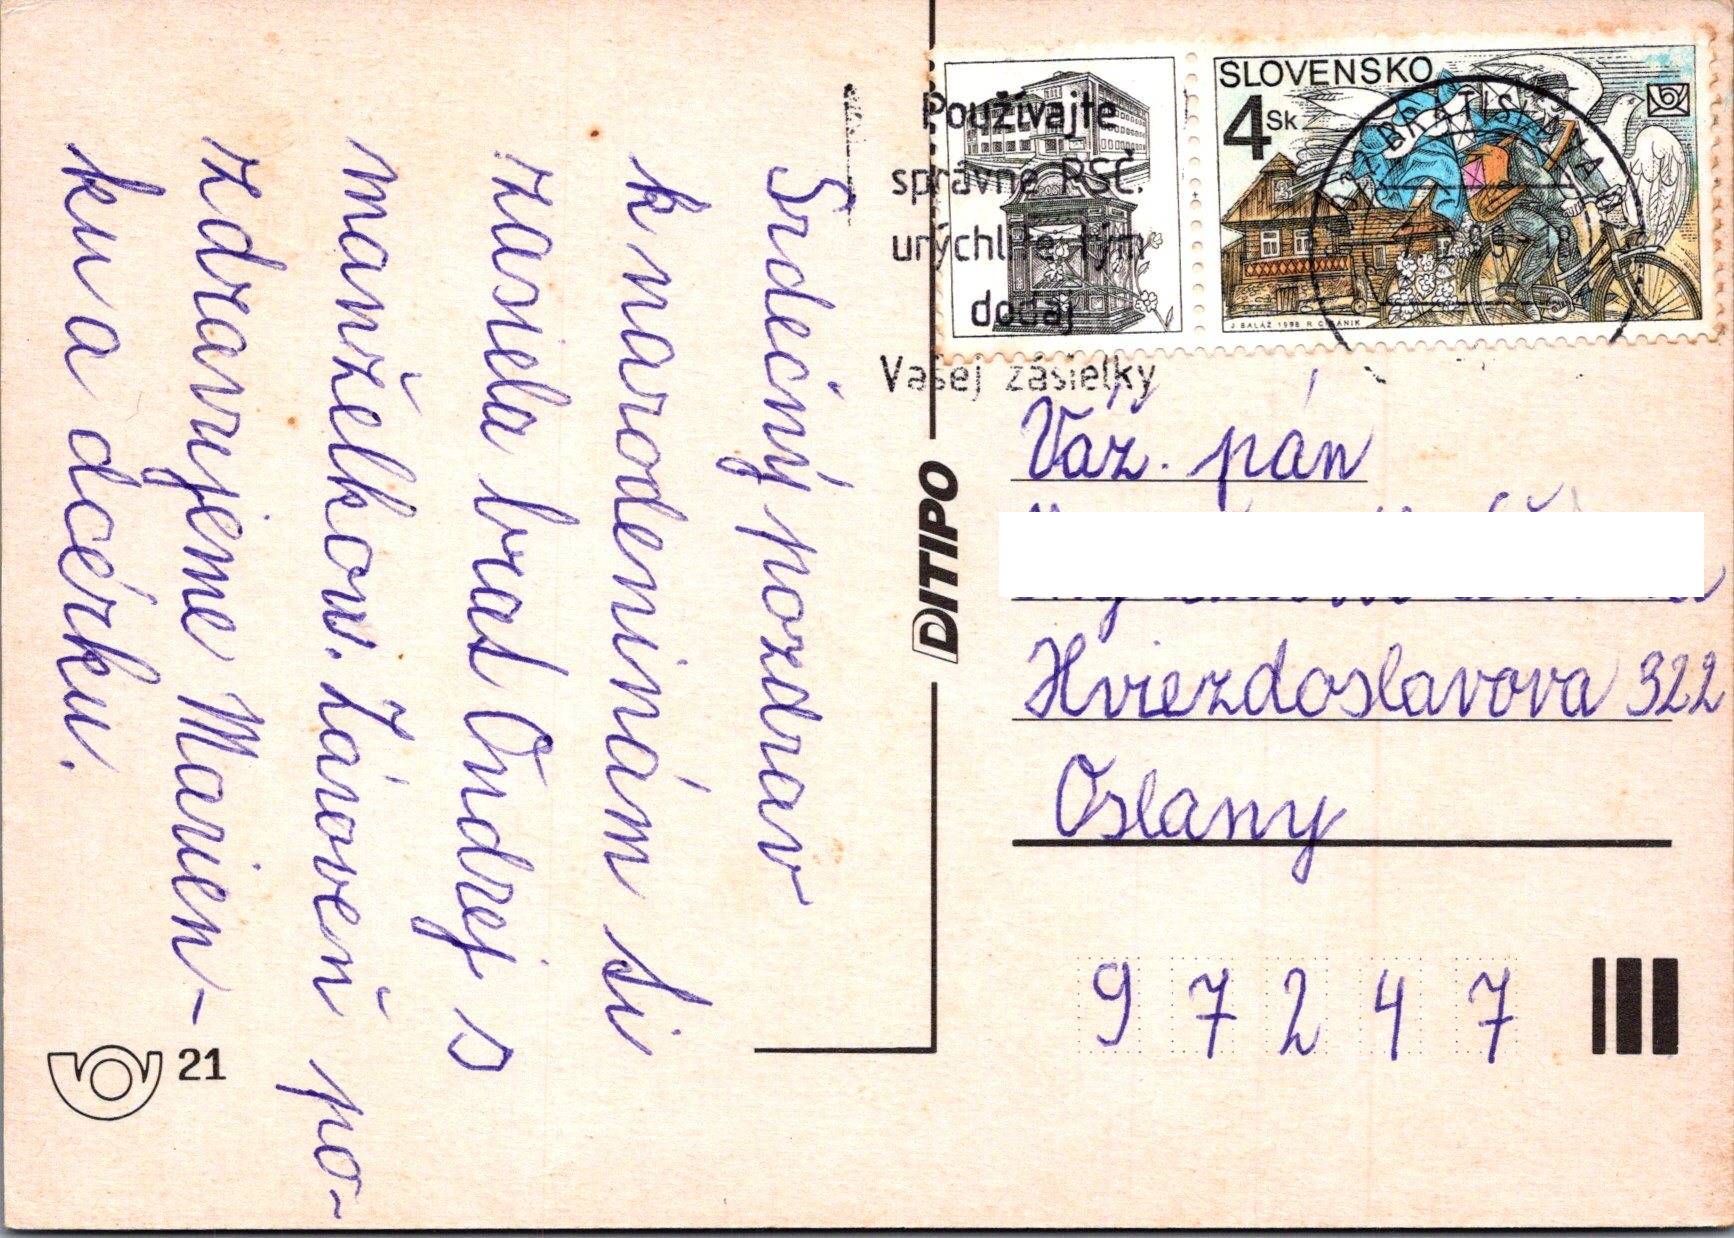 Srdečný pozdrav
k narodeninám Ti
zasiela brat Ondrej s
manželkou. Zároveň po-
zdravujeme Marien-
ku a dcérku.
21
DITIPO
Používajte
správne PSČ.
urýchlite tým
dodaj
Vašej zásielky
SLOVENSKO
4 Sk
J. BALÁŽ 1998 R. CIGÁNIK
BRATISLAVA
Váž. pán
Hviezdoslavova 322
Oslany
97247